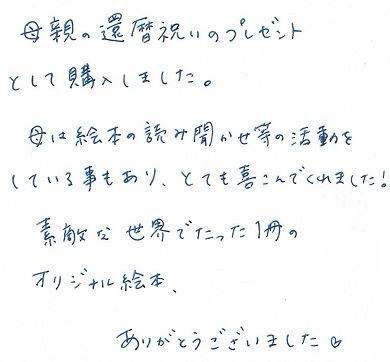 母親の還暦祝いのプレゼント
として購入しました。
母は絵本の読み聞かせ等の活動を
している事もあり、とても喜こんでくれました!
素敵な世界でたった1冊の
オリジナル絵本、
ありがとうございました♡